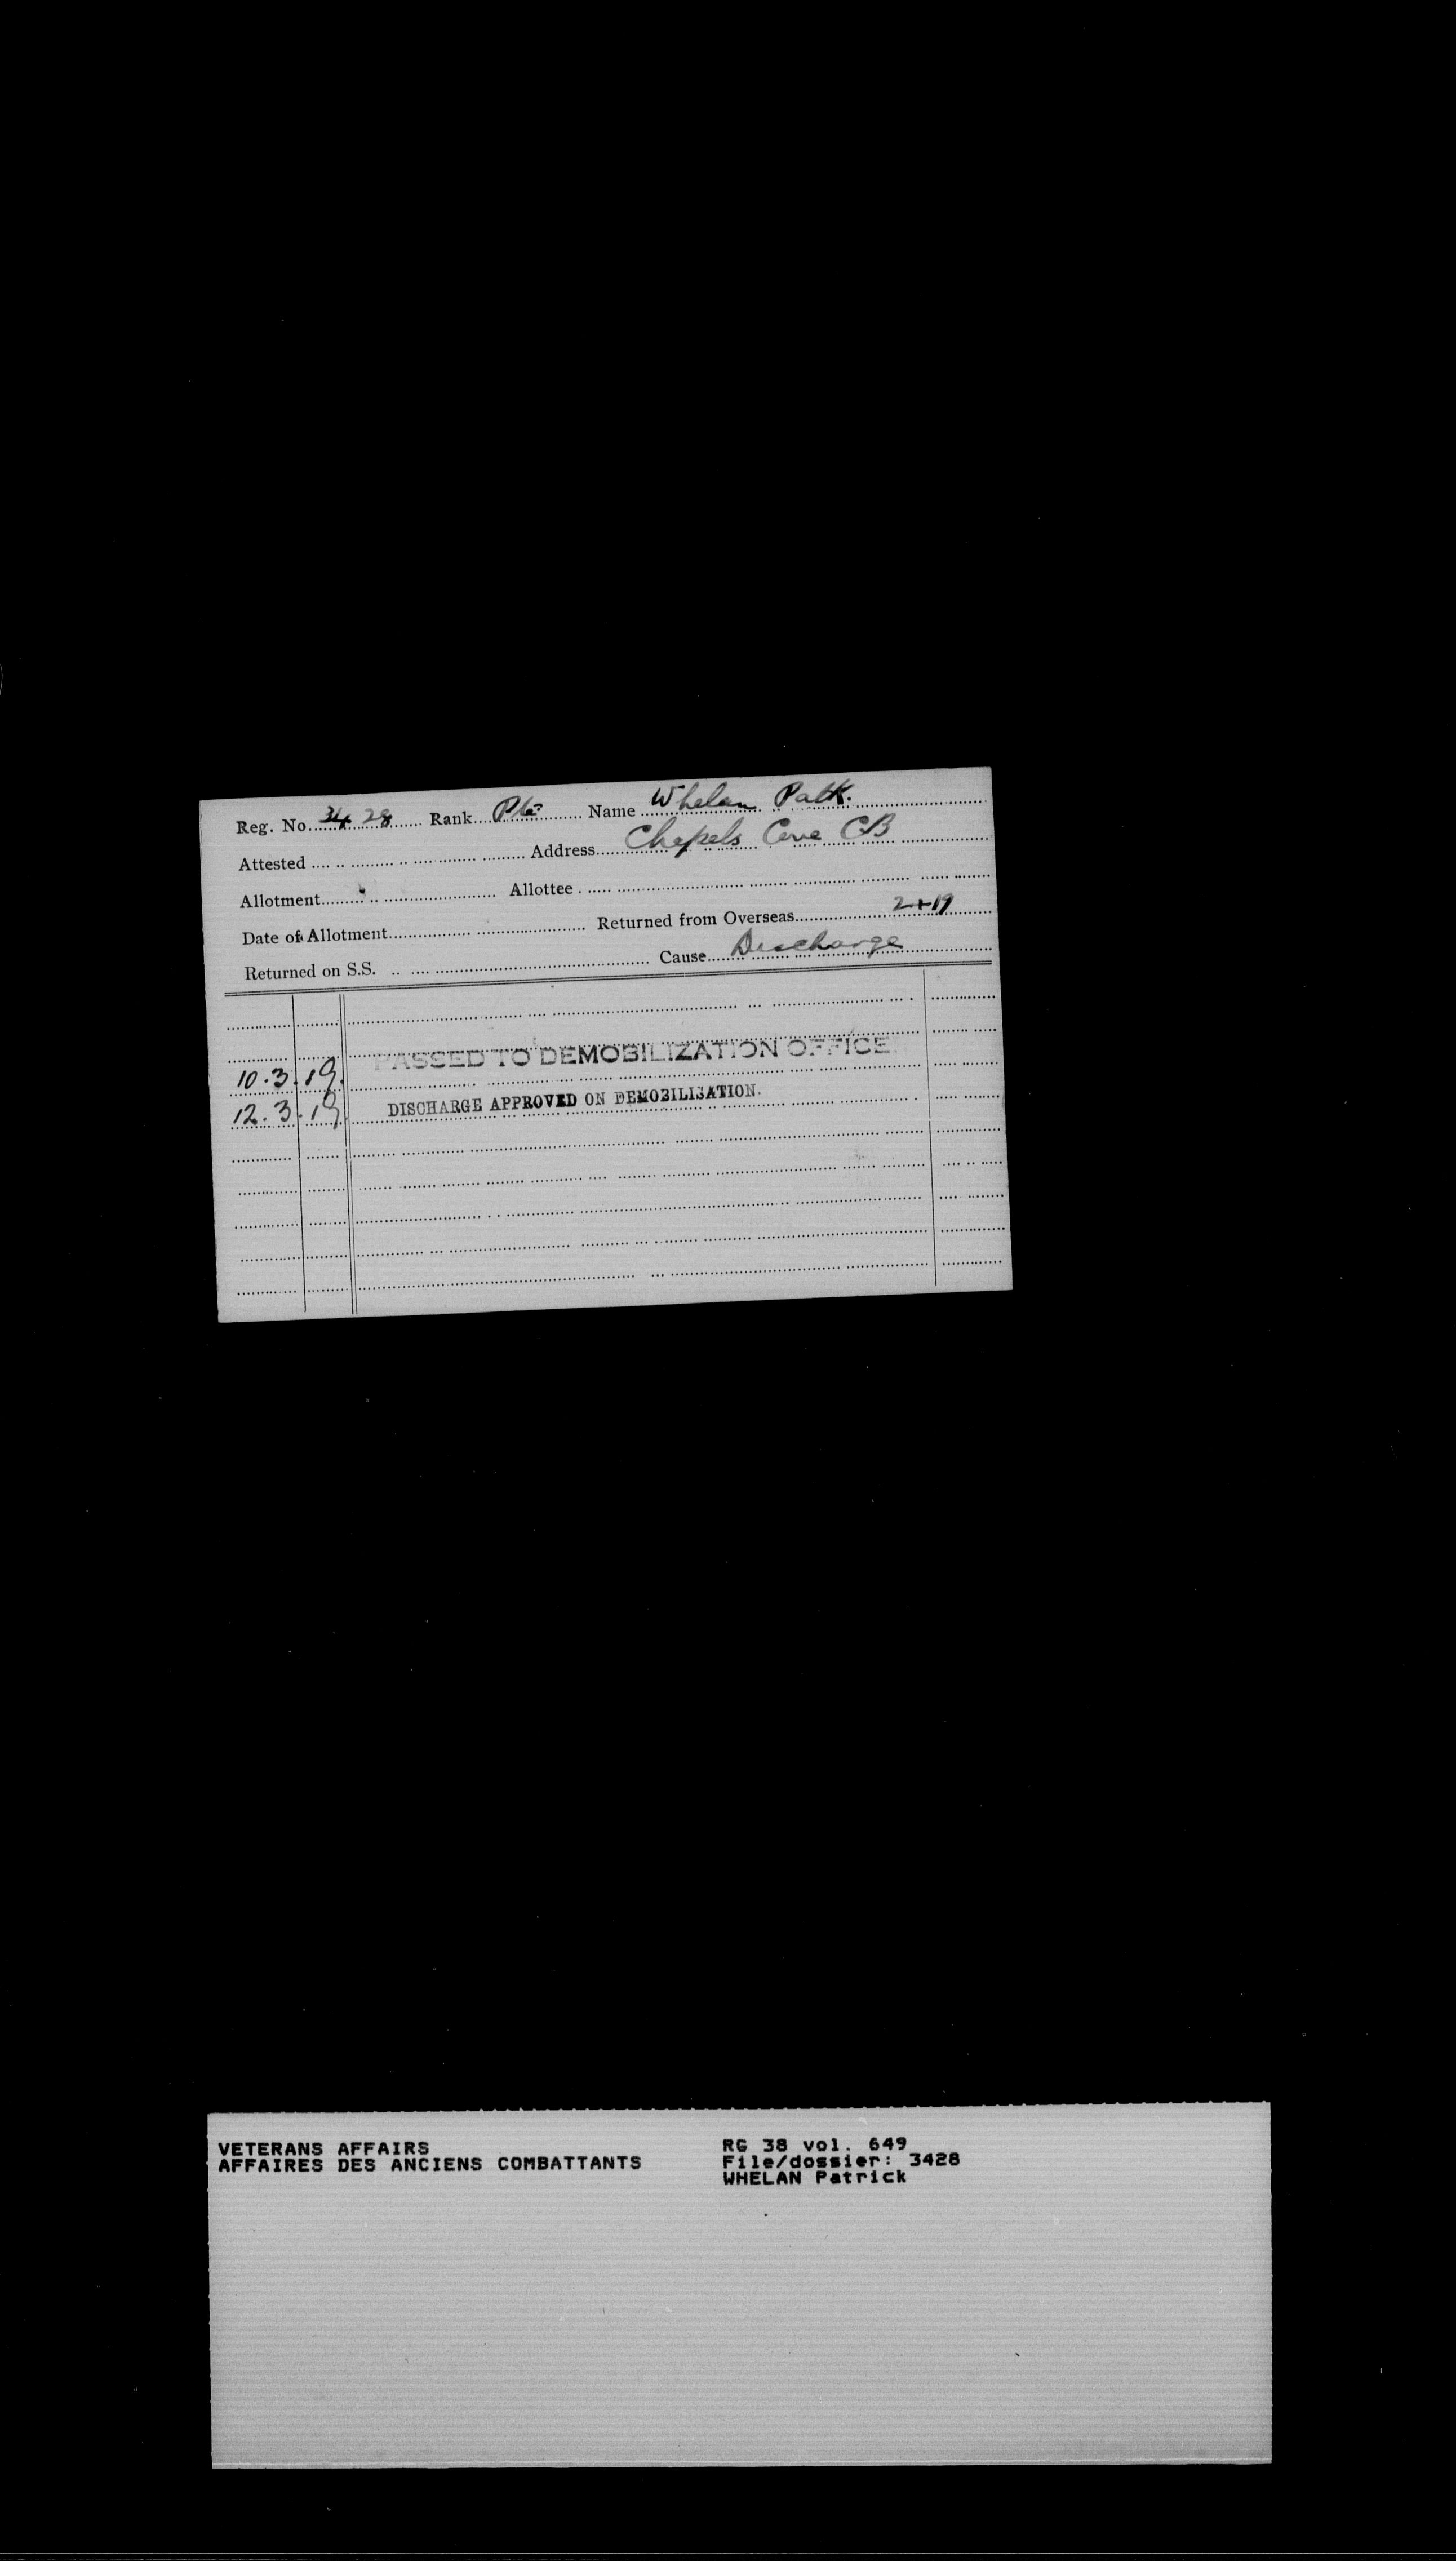 Reg. No. 3428 Rank Pte Name Whelan Patk.
Attested Address Chapels Cove CB
Allotment Allottee
Date of Allotment Returned from Overseas 19
Returned on S.S. Cause Discharge
PASSED TO DEMOBILIZATION OFFICE
10.3.19.
12.3.19. DISCHARGE APPROVED ON DEMOBILISATION.
VETERANS AFFAIRS RG 38 vol. 649
AFFAIRES DES ANCIENS COMBATTANTS File/dossier: 3428
WHELAN Patrick